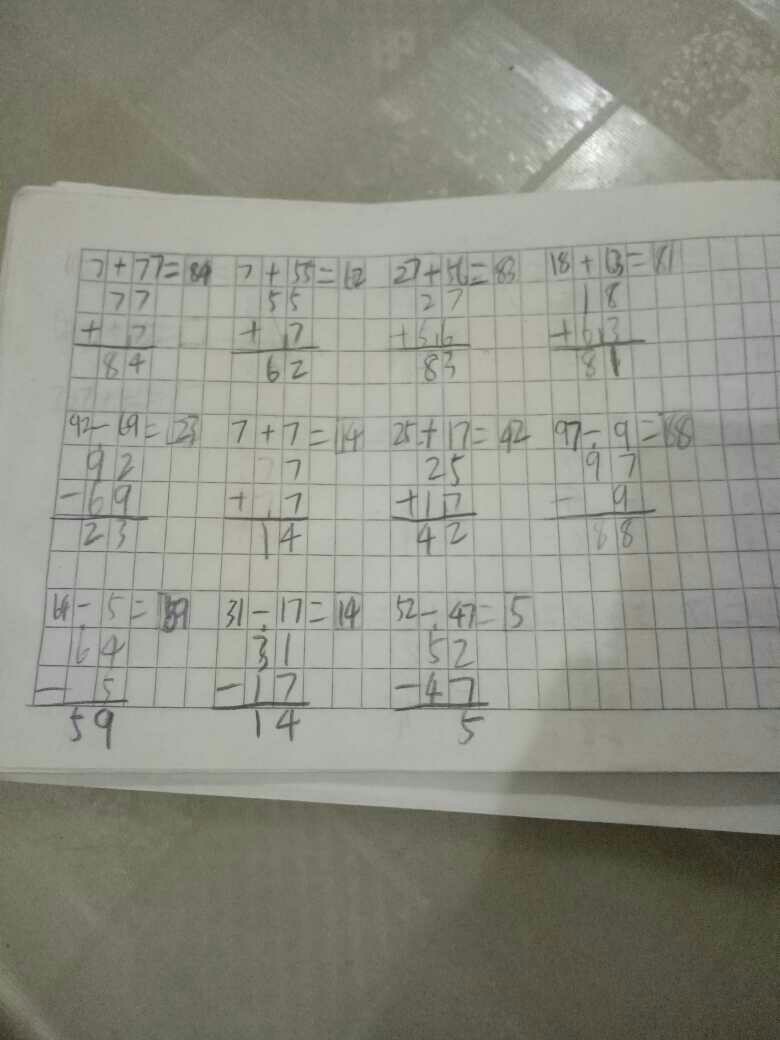 7+77=84 7+55=62 27+56=83 18+63=81
77 55 27 18
+ 7 + 7 +56 +63
84 62 83 81
92-69=23 7+7=14 25+17=42 97-9=88
92 7 25 97
-69 + 7 +17 - 9
23 14 42 88
64-5=59 31-17=14 52-47=5
64 31 52
- 5 -17 -47
59 14 5